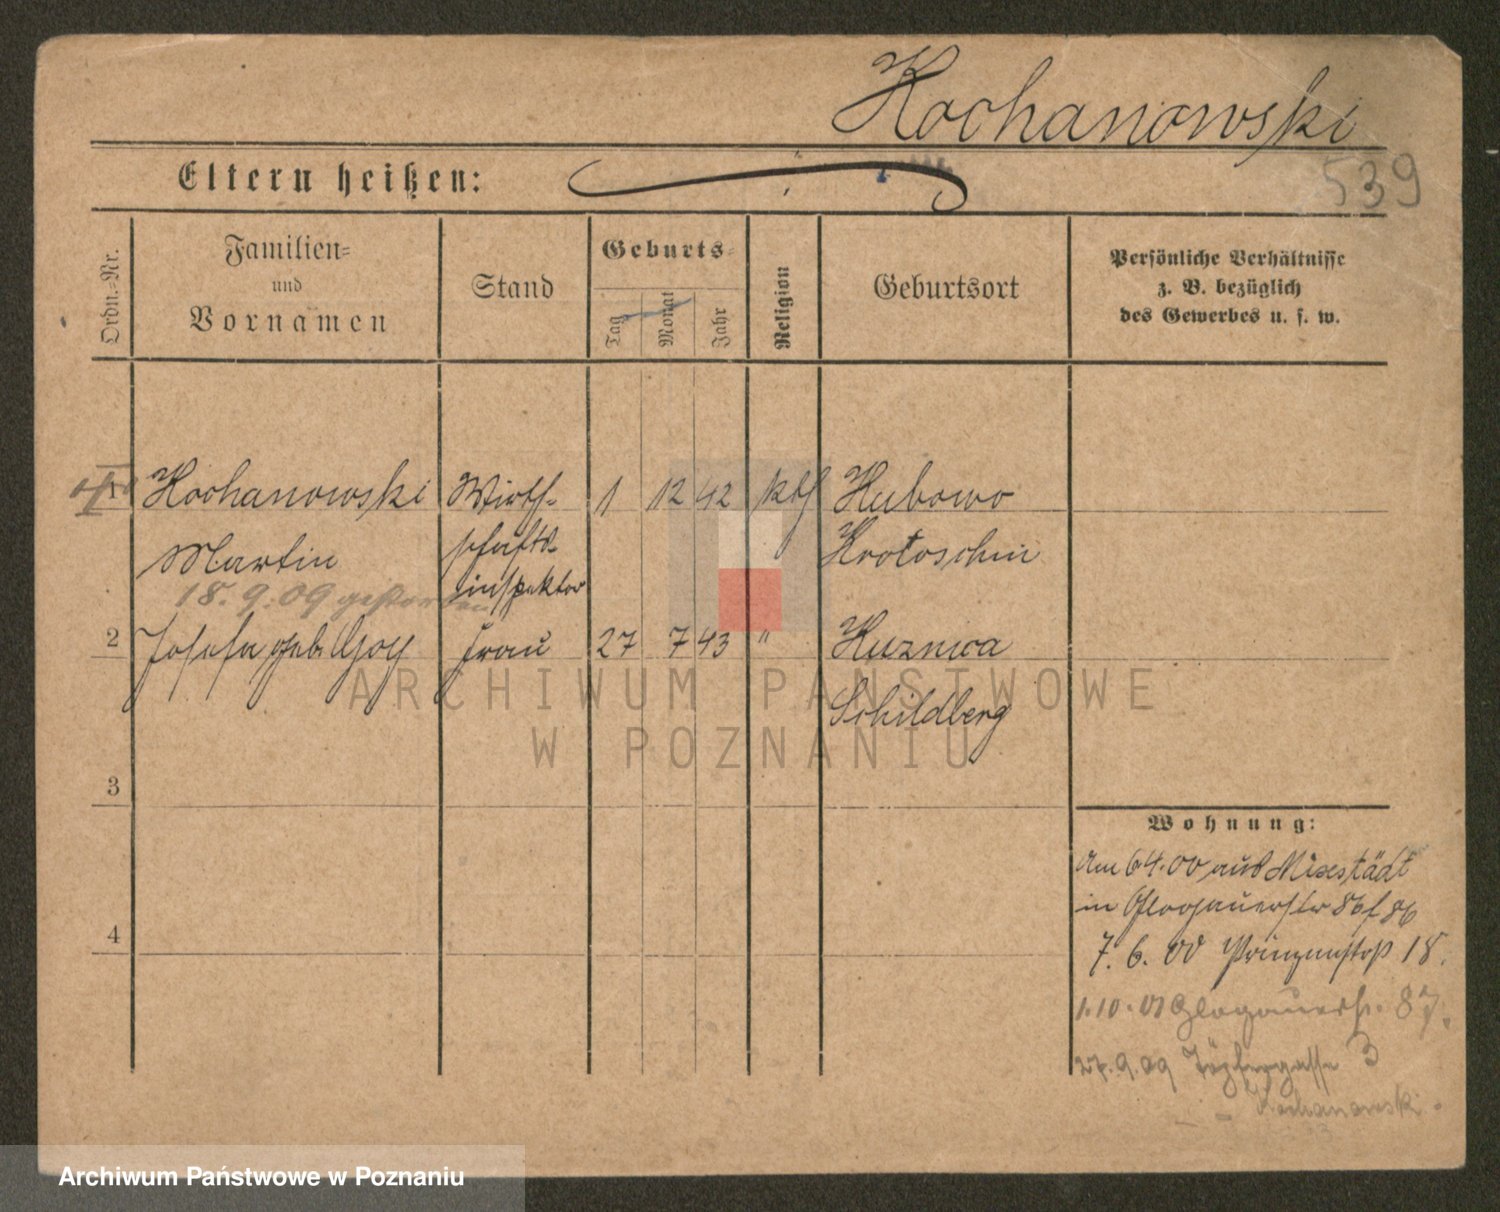 Kochanowski
539
Eltern heißen:
Ordn.-Nr.
Familien-
und
Vornamen
Stand
Geburts-
Tag
Monat
Jahr
Religion
Geburtsort
Persönliche Verhältnisse
z. B. bezüglich
des Gewerbes u. s. w.
1 Kochanowski Wirth- 1 12 42 kth Hubowo
Martin schafts- Krotoschin
18.9.09 gestorben inspektor
2 Josefa geb. Goy Frau 27 7 43 " Kuznica
Schildberg
3
4
Wohnung:
Am 6 4.00 aus
in Glogauerstr 86
7. 6. 00 Prinzenstr 18.
1.10.01 Glogauerstr. 87.
27.9.09 Töpfergasse 3
Kochanowski
ARCHIWUM PAŃSTWOWE
W POZNANIU
Archiwum Państwowe w Poznaniu